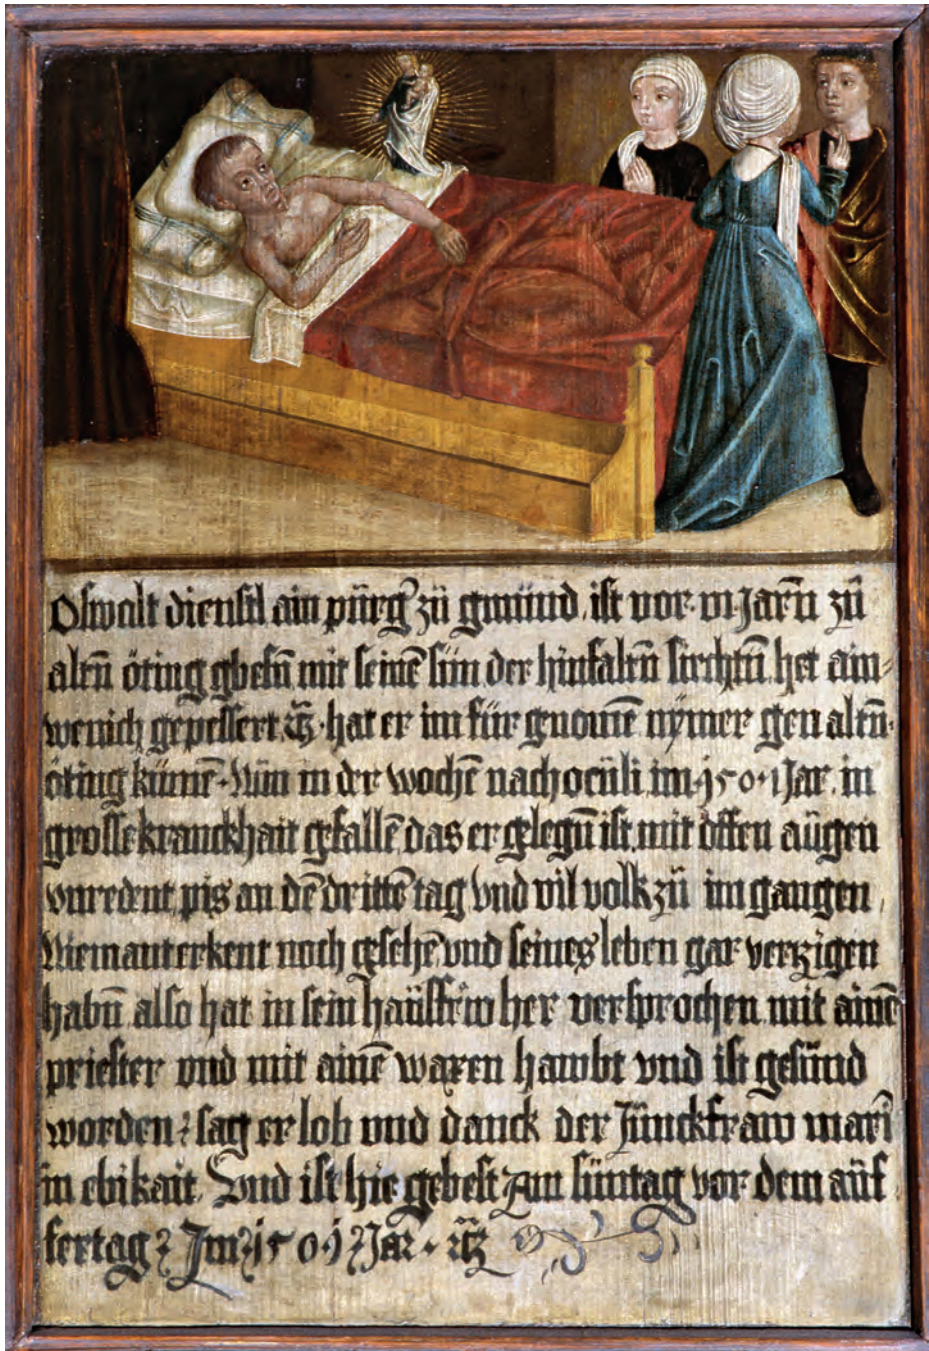 Oswalt dienstl ain pürg' zü gmünd, ist vor vi Jarn̄ zü
altn̄ öting gbesn̄ mit seinē sün der hinfaltn̄ sirchtūn, het ain=
wenich gepessert, hat er im für genomē nÿmer gen altn̄
öting kümē. Nün in der wochē nach ocüli im 1501 Jar, in
grosse kranckhait gefallē, das er gelegn̄ ist, mit offen aügen
vnredent, pis an dē drittē tag vnd vil volk zü im gangen,
Niemant erkent noch gesehē, vnd seines leben gar verzigen
habn̄, also hat in sein haüsfrw her versprochen mit ainē
priester vnd mit ainē waxen hawbt vnd ist gesünd
worden: sag er lob vnd danck der Jünckfraw mari
in ebikait, Vnd ist hie gebest Am süntag vor dem aüf
fertag Im 1501 Jar̄